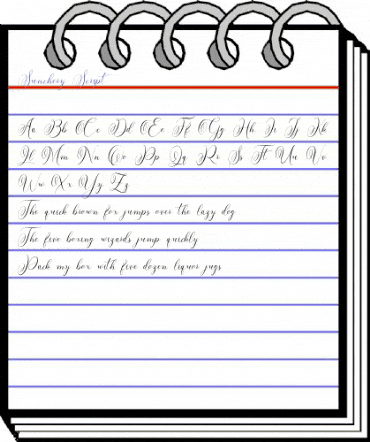 Sunchery Script
Aa Bb Cc Dd Ee Ff Gg Hh Ii Jj Kk
Ll Mm Nn Oo Pp Qq Rr Ss Tt Uu Vv
Ww Xx Yy Zz
The quick brown fox jumps over the lazy dog
The five boxing wizards jump quickly
Pack my box with five dozen liquor jugs